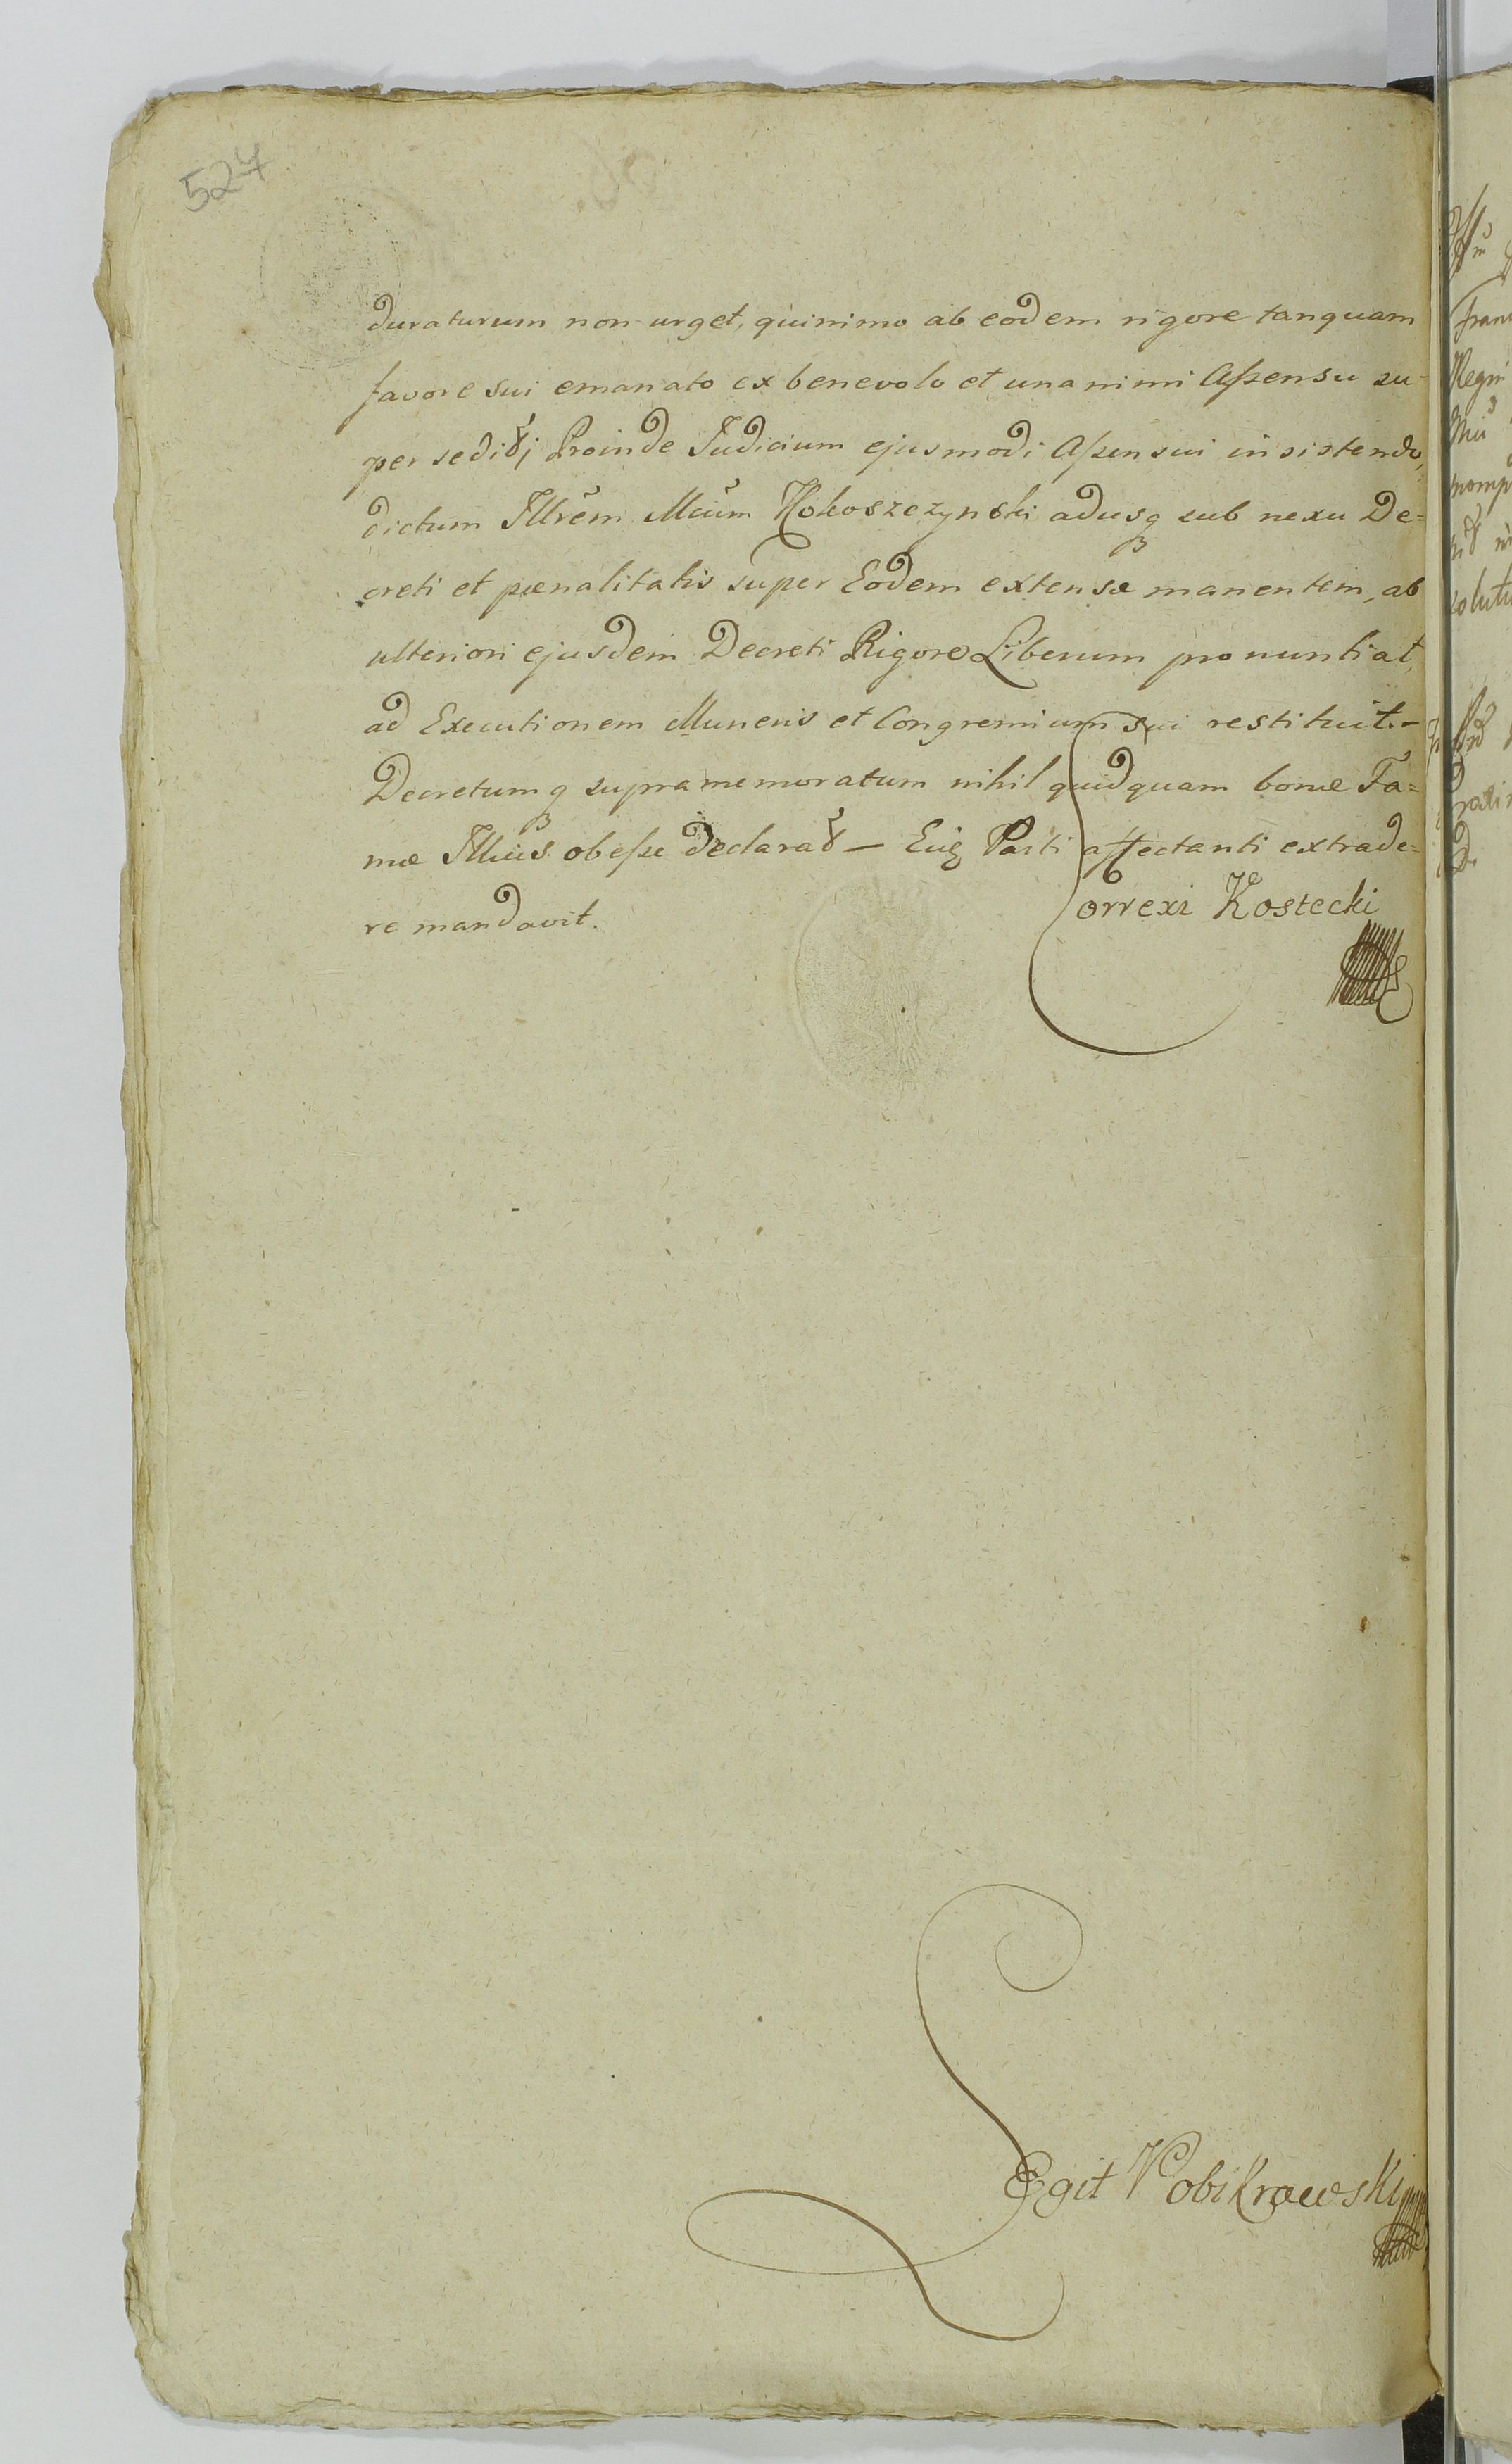 524
duraturum non urget, quinimo ab eodem rigore tanquam
favore sui emanato ex benevolo et unanimi Aſsensu su-
per sedit; Proinde Judicium ejusmodi Aſsensui insistendo,
dictum Illrem Mcum Kokoszczynski adusq sub nexu De=
creti et pœnalitatis super Eodem extensæ manentem, ab
ulteriori ejusdem Decreti Rigore Liberum pronuntiat,
ad Executionem Muneris et Congremium sui restituit.-
Decretumq supramemoratum nihil quidquam bonæ Fa=
mæ Illius obeſse declarat — Eiq Parti affectanti extrade=
re mandavit.
Correxi Kostecki
Egit